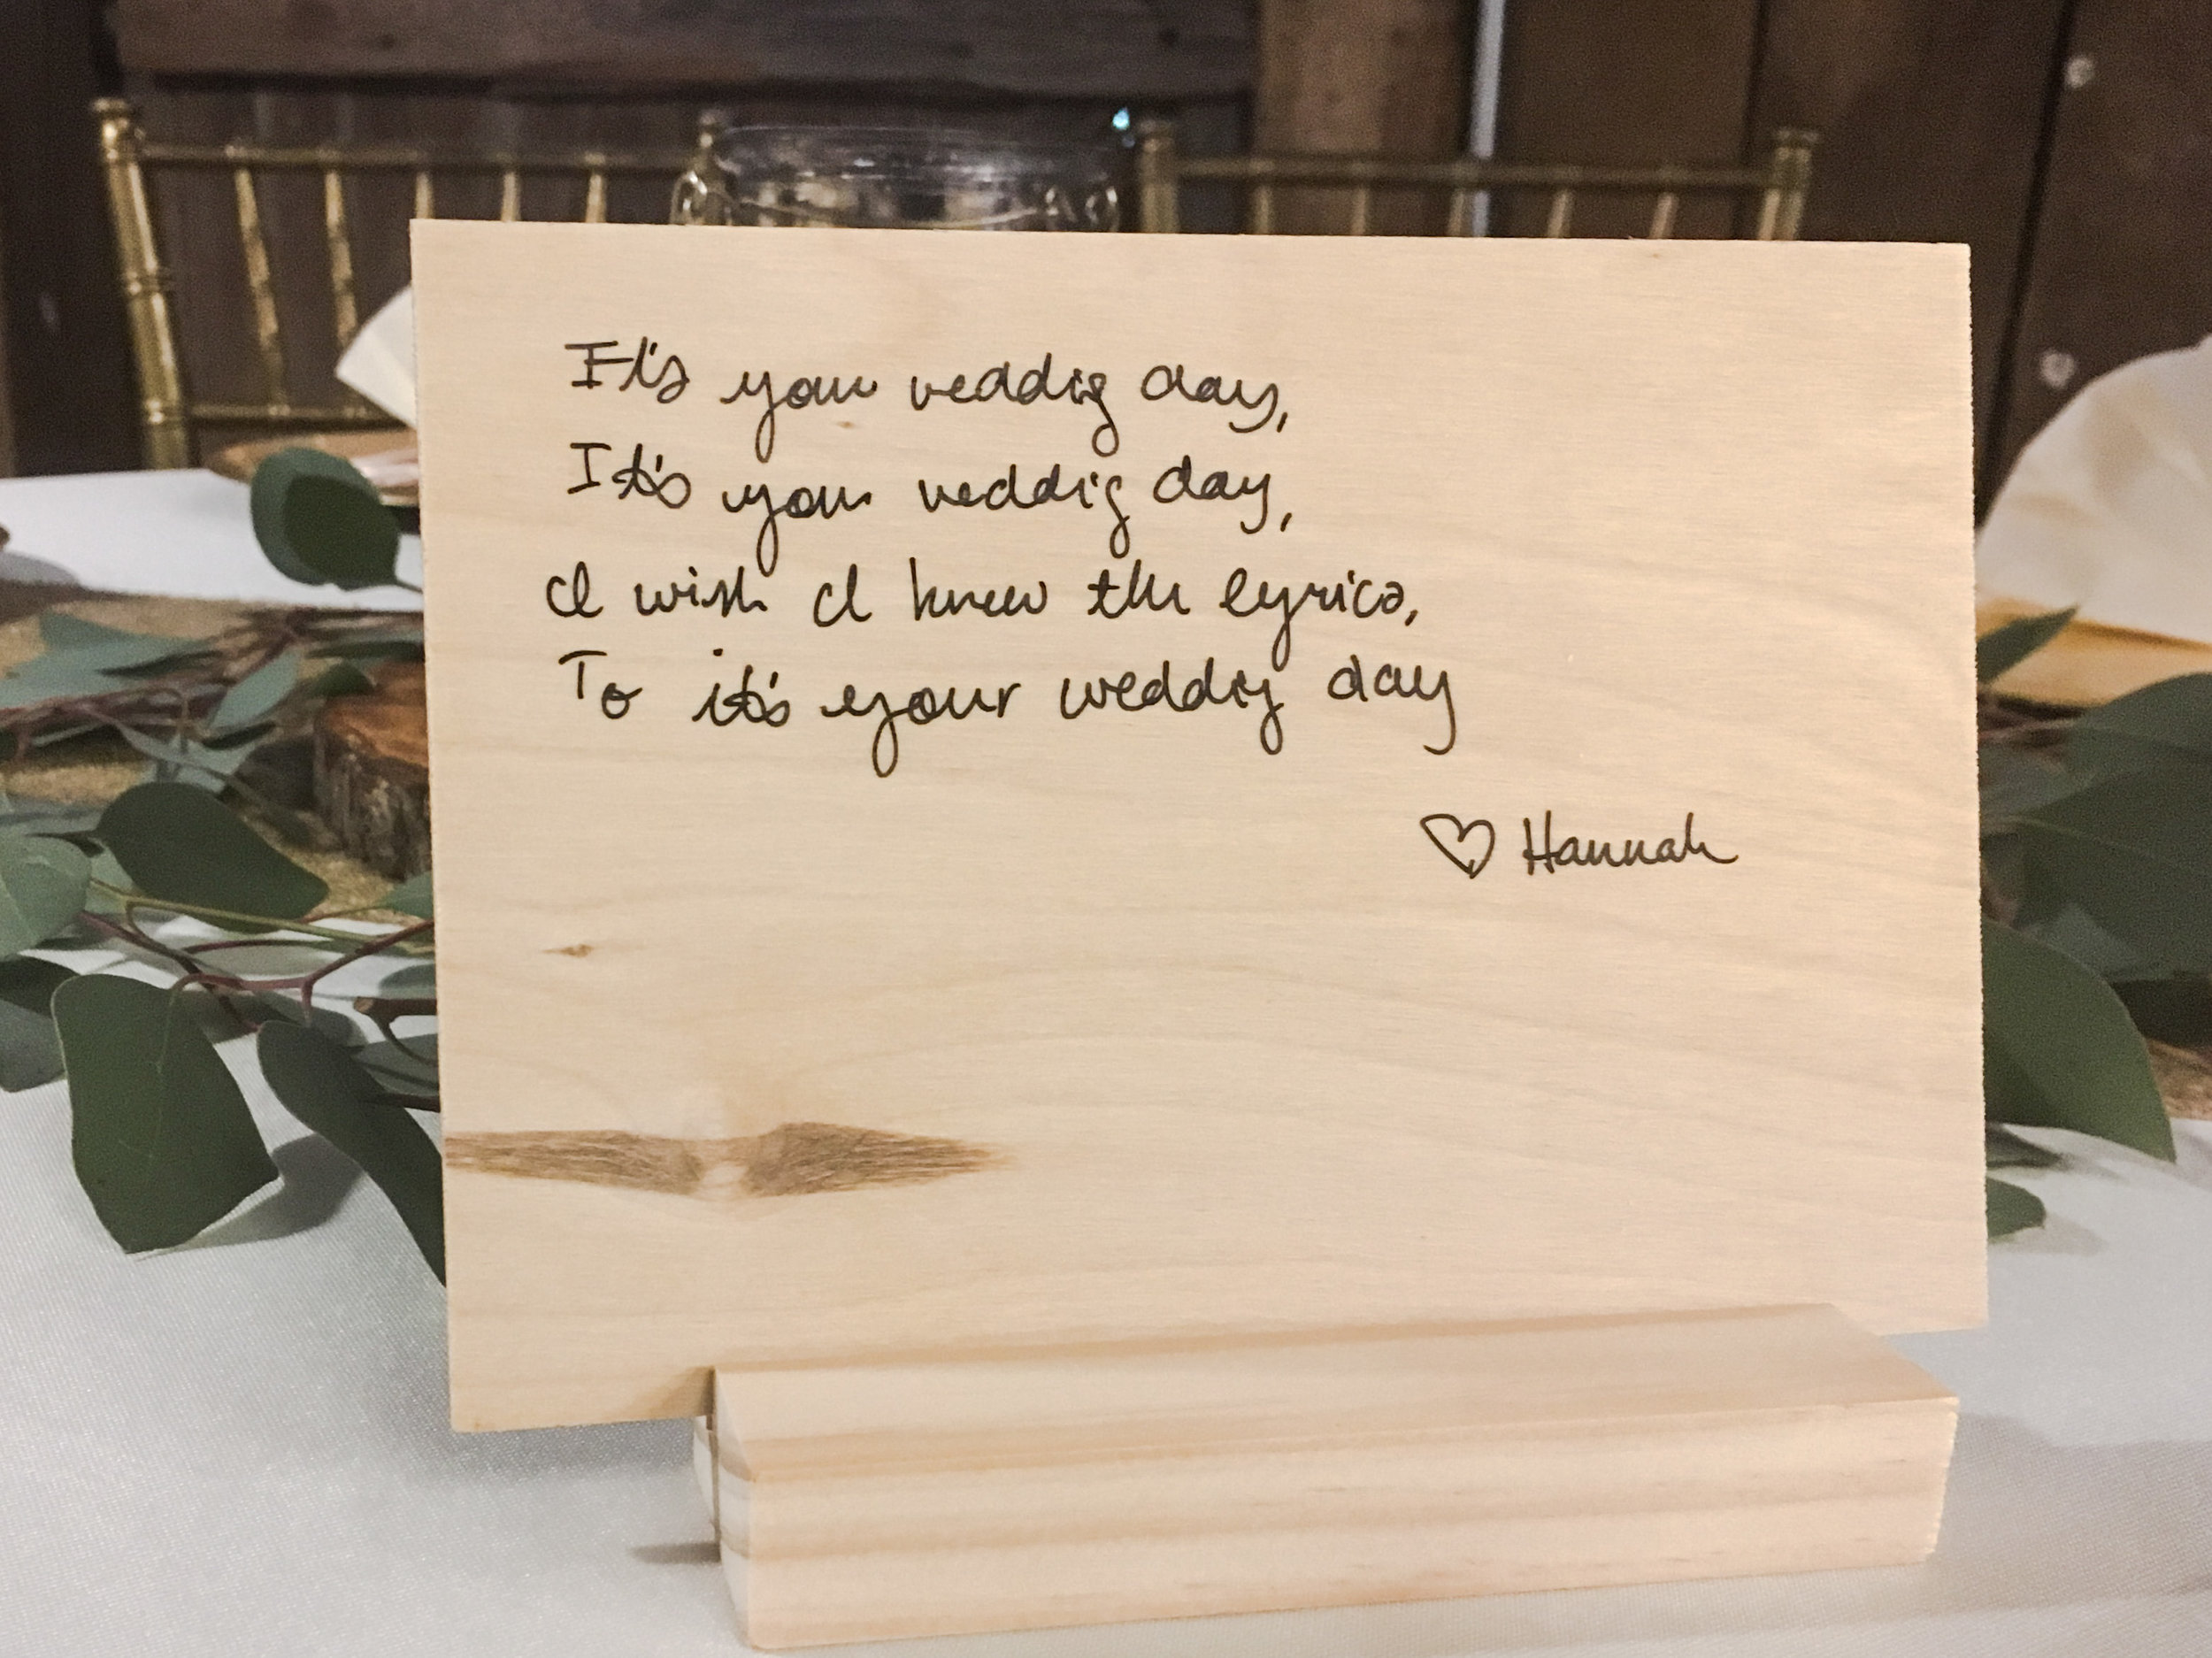 It's your wedding day,
It's your wedding day,
I wish I knew the lyrics,
To it's your wedding day
♡ Hannah